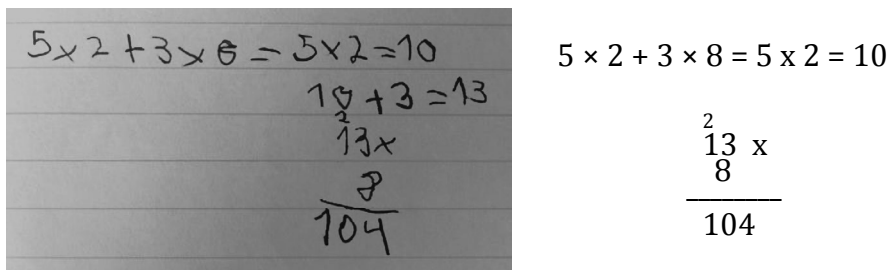 5x2+3x8=5x2=10
10+3=13
2
13x
8
104
5 × 2 + 3 × 8 = 5 x 2 = 10
2
13 x
8
104